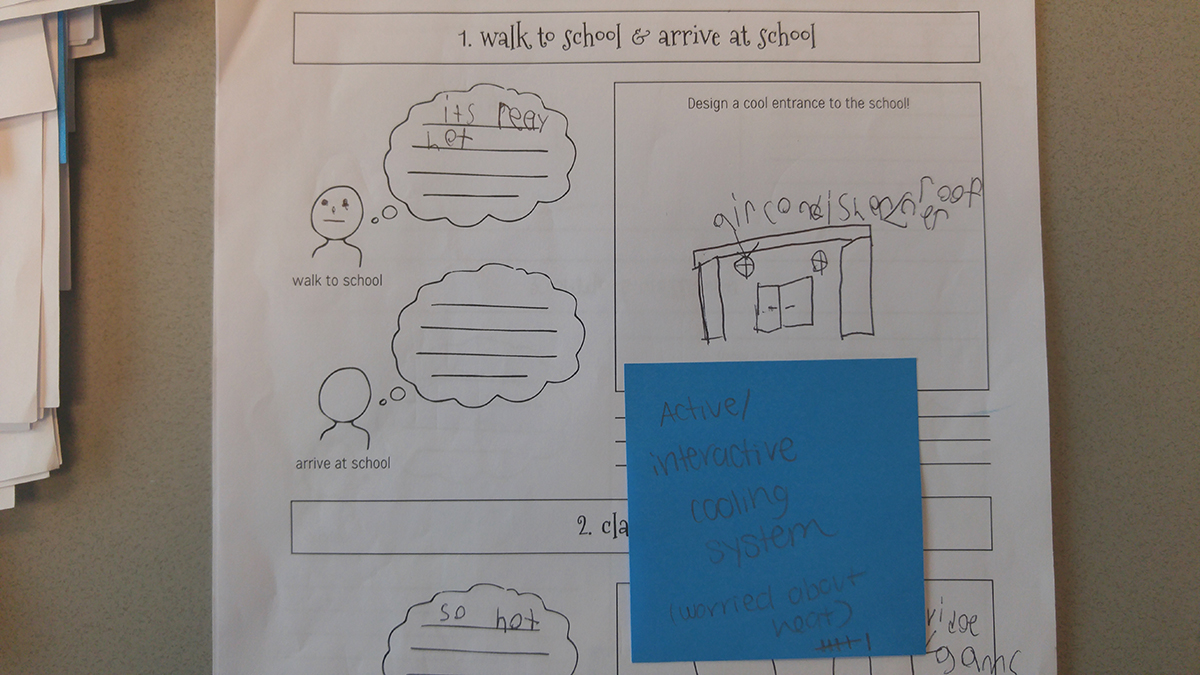 1. walk to school & arrive at school
its reey
hot
walk to school
arrive at school
Design a cool entrance to the school!
roof
aircondishener
Active/
interactive
cooling
system
(worried about
heat)
2. cla
so hot
game